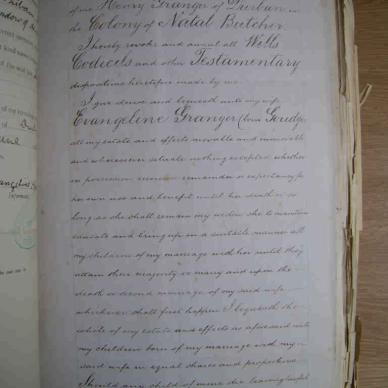 of me Henry Granger of Durban in
the Colony of Natal Butcher
I hereby revoke and annul all Wills
Codicils and other Testamentary
dispositions heretofore made by me
I give devise and bequeath unto my wife
Evangeline Granger (born
all my estate and effects movable and immovable
and wheresoever situate nothing excepted whether
in possession reversion remainder or expectancy for
her own use and benefit until her death or so
long as she shall remain my widow she to maintain
educate and bring up in a suitable manner all
my children of my marriage with her until they
attain their majority or marry and upon the
death or second marriage of my said wife
whichever shall first happen I bequeath the
whole of my estate and effects as aforesaid unto
my children born of my marriage with my
said wife in equal shares and proportions
Should any child of mine die leaving lawful